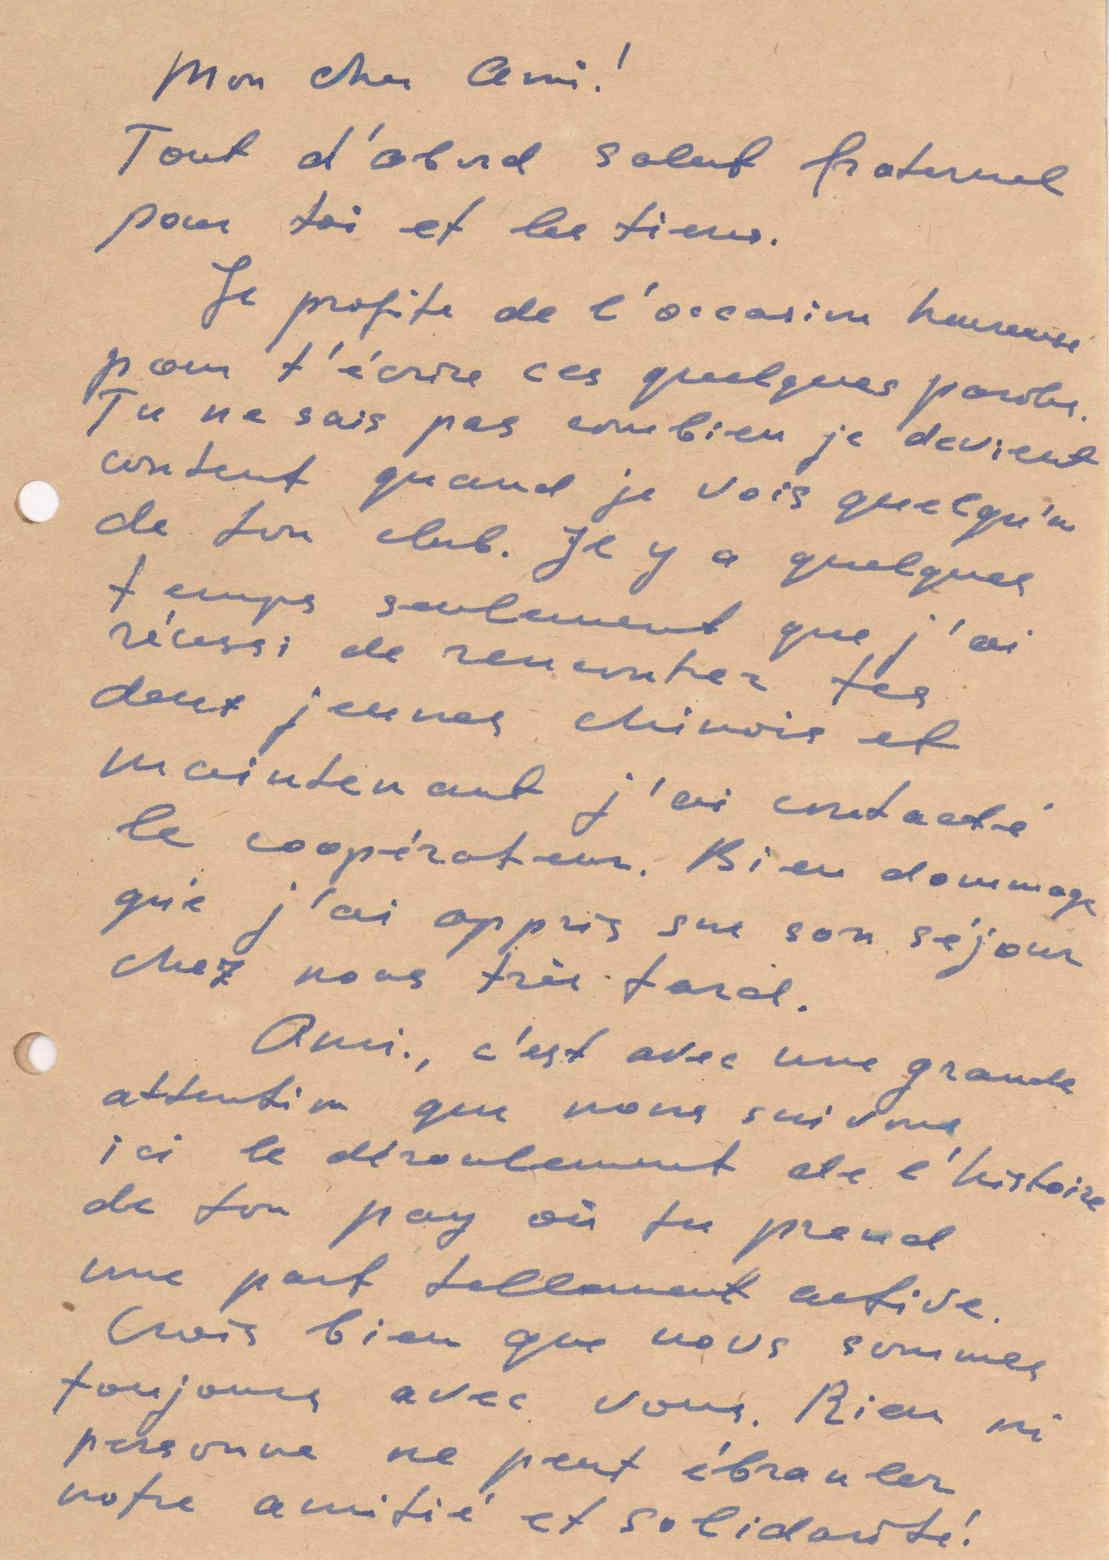 Mon cher Ami!
Tout d'abord salut fraternel
pour toi et les tiens.
Je profite de l'occasion heureuse
pour t'écrire ces quelques paroles.
Tu ne sais pas combien je devient
content quand je vois quelqu'un
de ton club. Il y a quelques
temps seulement que j'ai
réussi de rencontrer tes
deux jeunes chinois et
maintenant j'ai contacté
le coopérateur. Bien dommage
que j'ai appris sur son séjour
chez nous très tard.
Ami, c'est avec une grande
attention que nous suivons
ici le déroulement de l'histoire
de ton pay où tu prend
une part tellement active.
Crois bien que nous sommes
toujours avec vous. Rien ni
personne ne peut ébranler
notre amitié et solidarité!